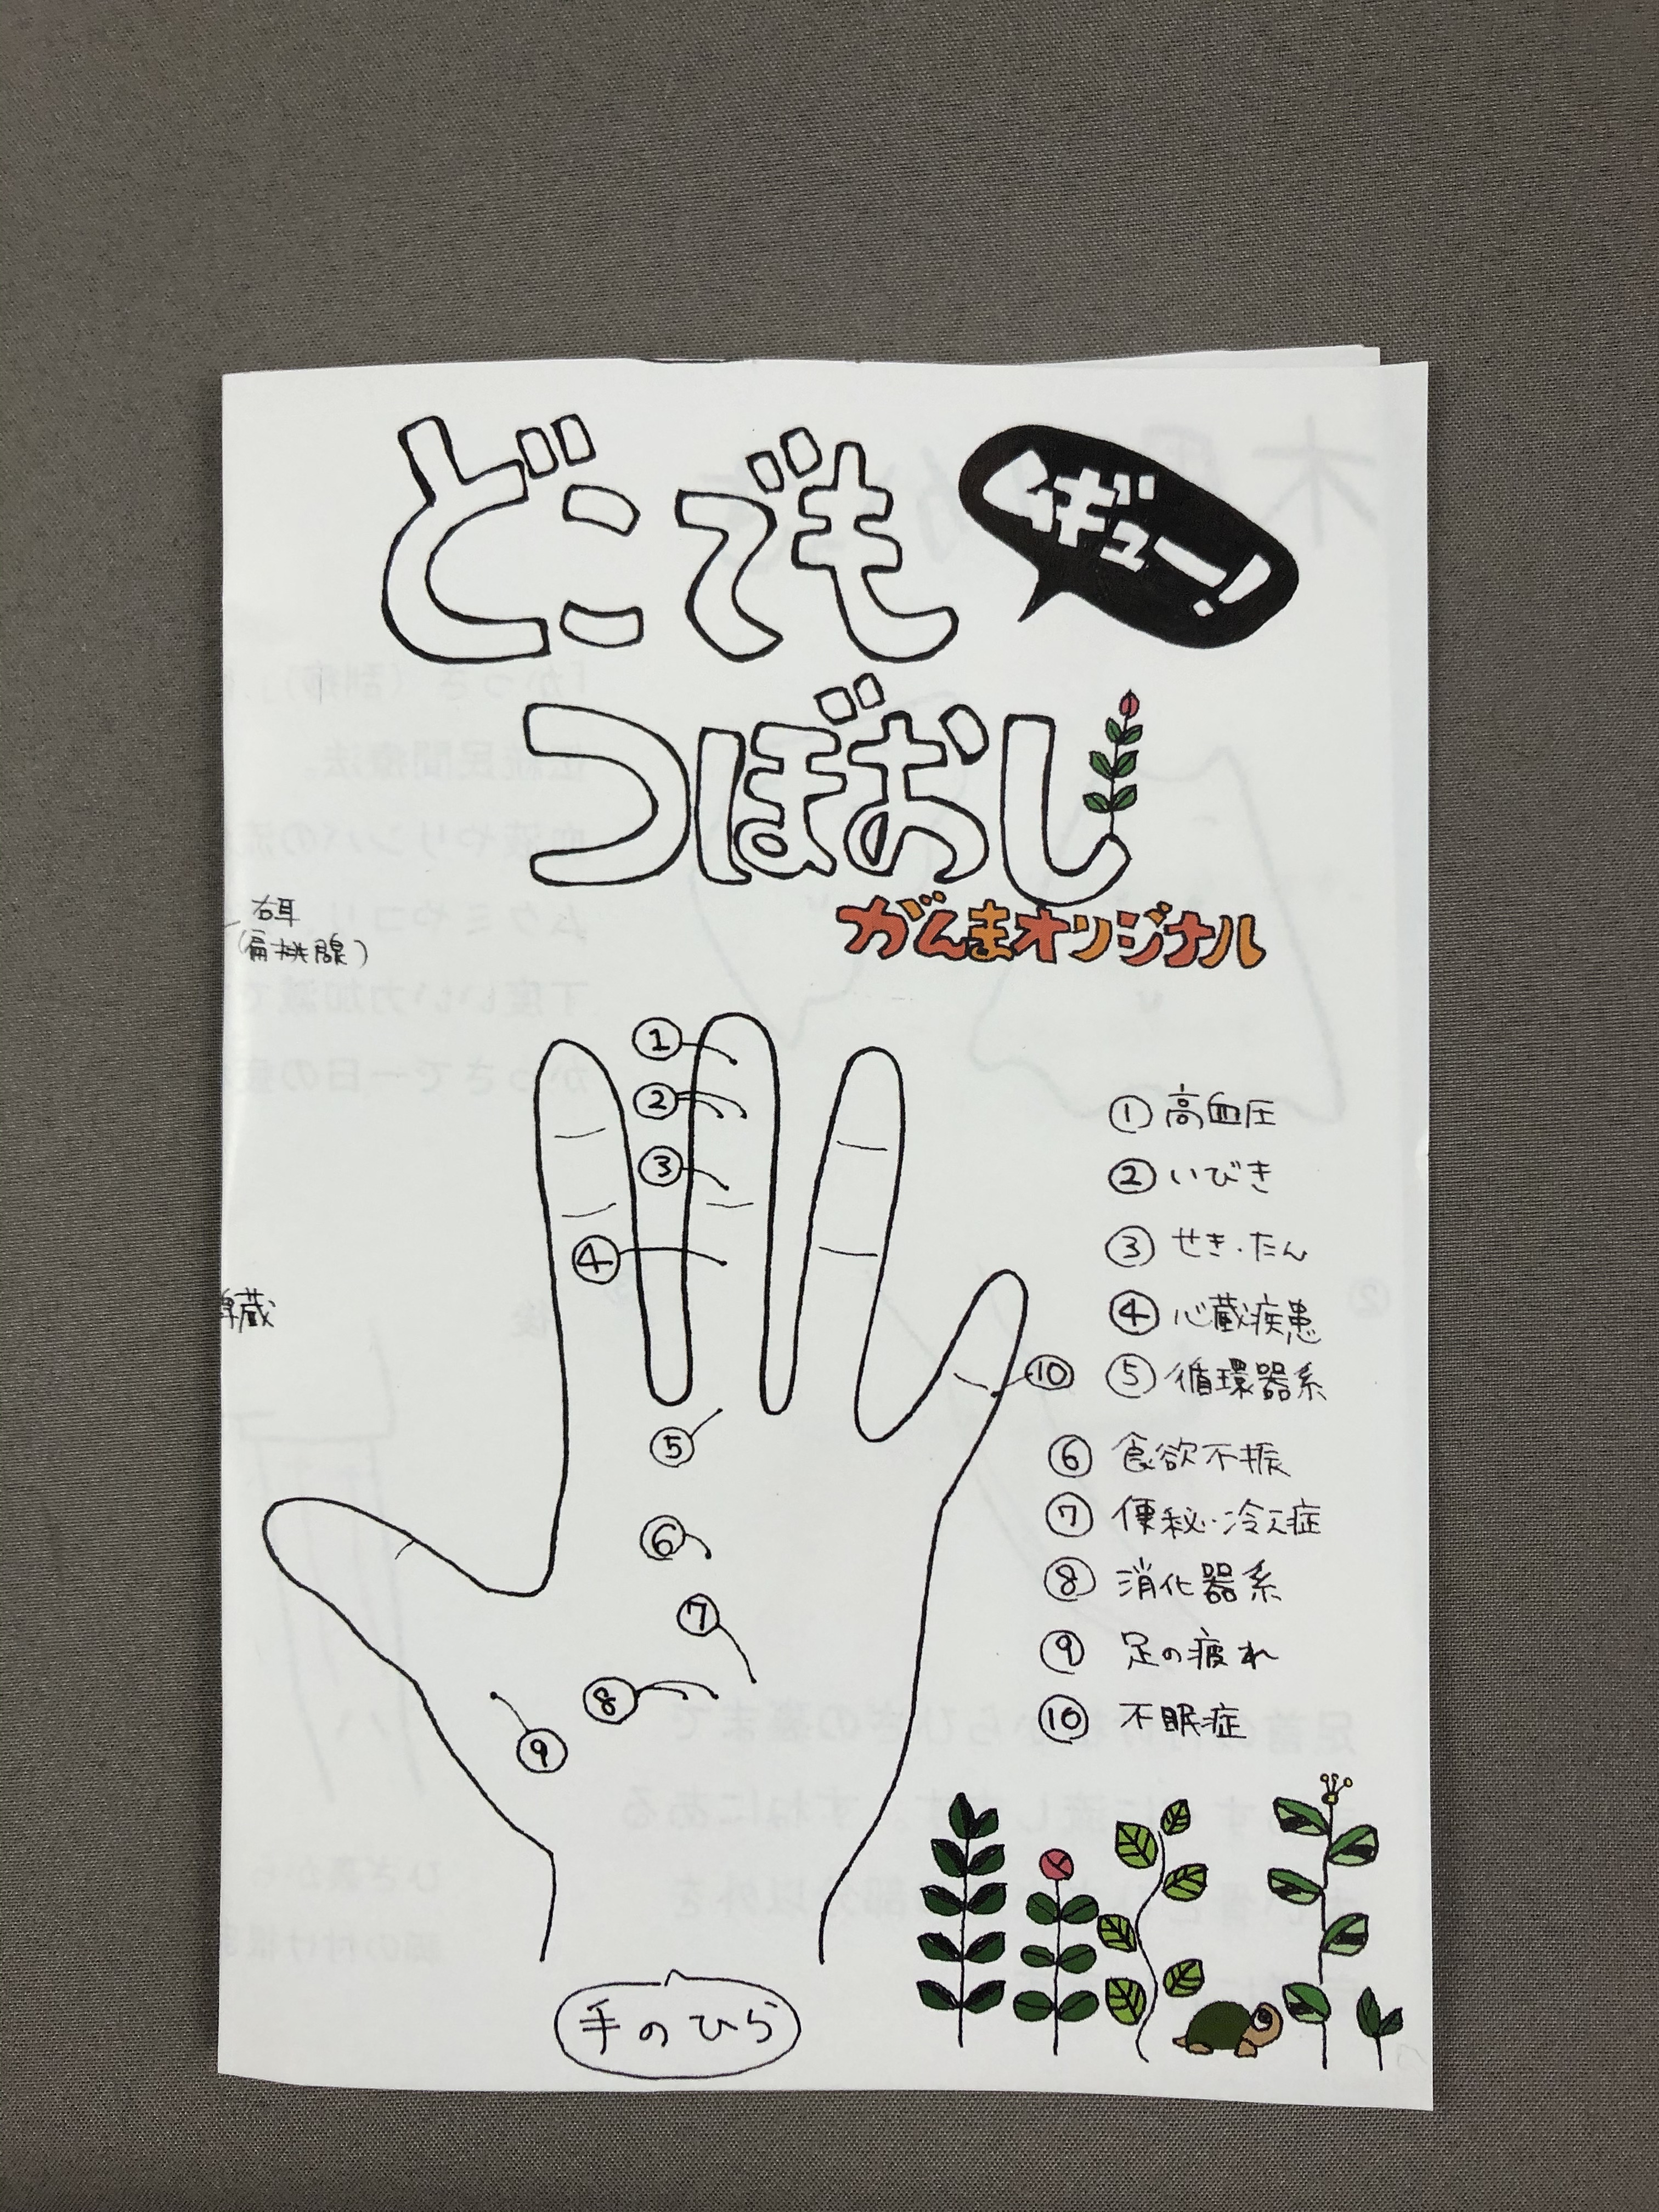 どこでも
ムギュー!
つぼおし
がんまオリジナル
右耳
(扁桃腺)
①
②
③
④
⑤
⑥
⑦
⑧
⑨
⑩
① 高血圧
② いびき
③ せき・たん
④ 心蔵疾患
⑤ 循環器系
⑥ 食欲不振
⑦ 便秘・冷え症
⑧ 消化器系
⑨ 足の疲れ
⑩ 不眠症
手のひら